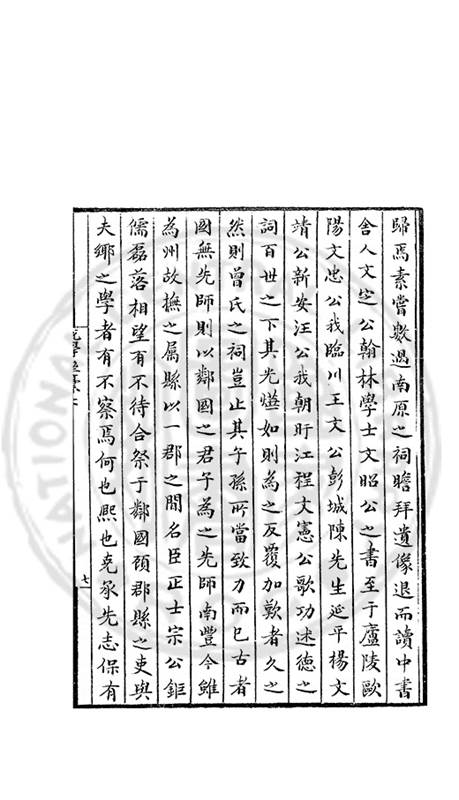 歸焉素嘗數過南原之祠瞻拜遺像退而讀中書
舍人文定公翰林學士文昭公之書至于廬陵歐
陽文忠公我臨川王文公彭城陳先生延平楊文
靖公新安汪公我朝盱江程文憲公歌功述德之
詞百世之下其光燁如則為之反覆加歎者久之
然則曾氏之祠豈止其子孫所當致力而已古者
國無先師則以鄰國之君子為之先師南豐今雖
為州故撫之屬縣以一郡之間名臣正士宗公鉅
儒磊落相望有不待合祭于鄰國頋郡縣之吏與
夫鄉之學者有不察焉何也熈也克承先志保有
七
NATIONAL